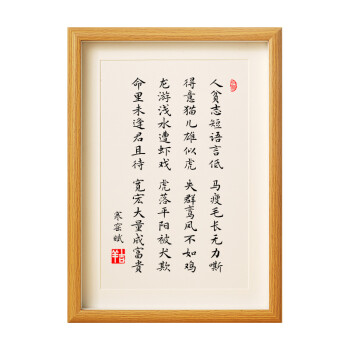 人貧志短语言低 马瘦毛长无力嘶
得意猫儿雄似虎 失群鸾凤不如鸡
龙游浅水遭虾戏 虎落平阳被犬欺
命里未逢君且待 寬宏大量成富貴
寒窑赋